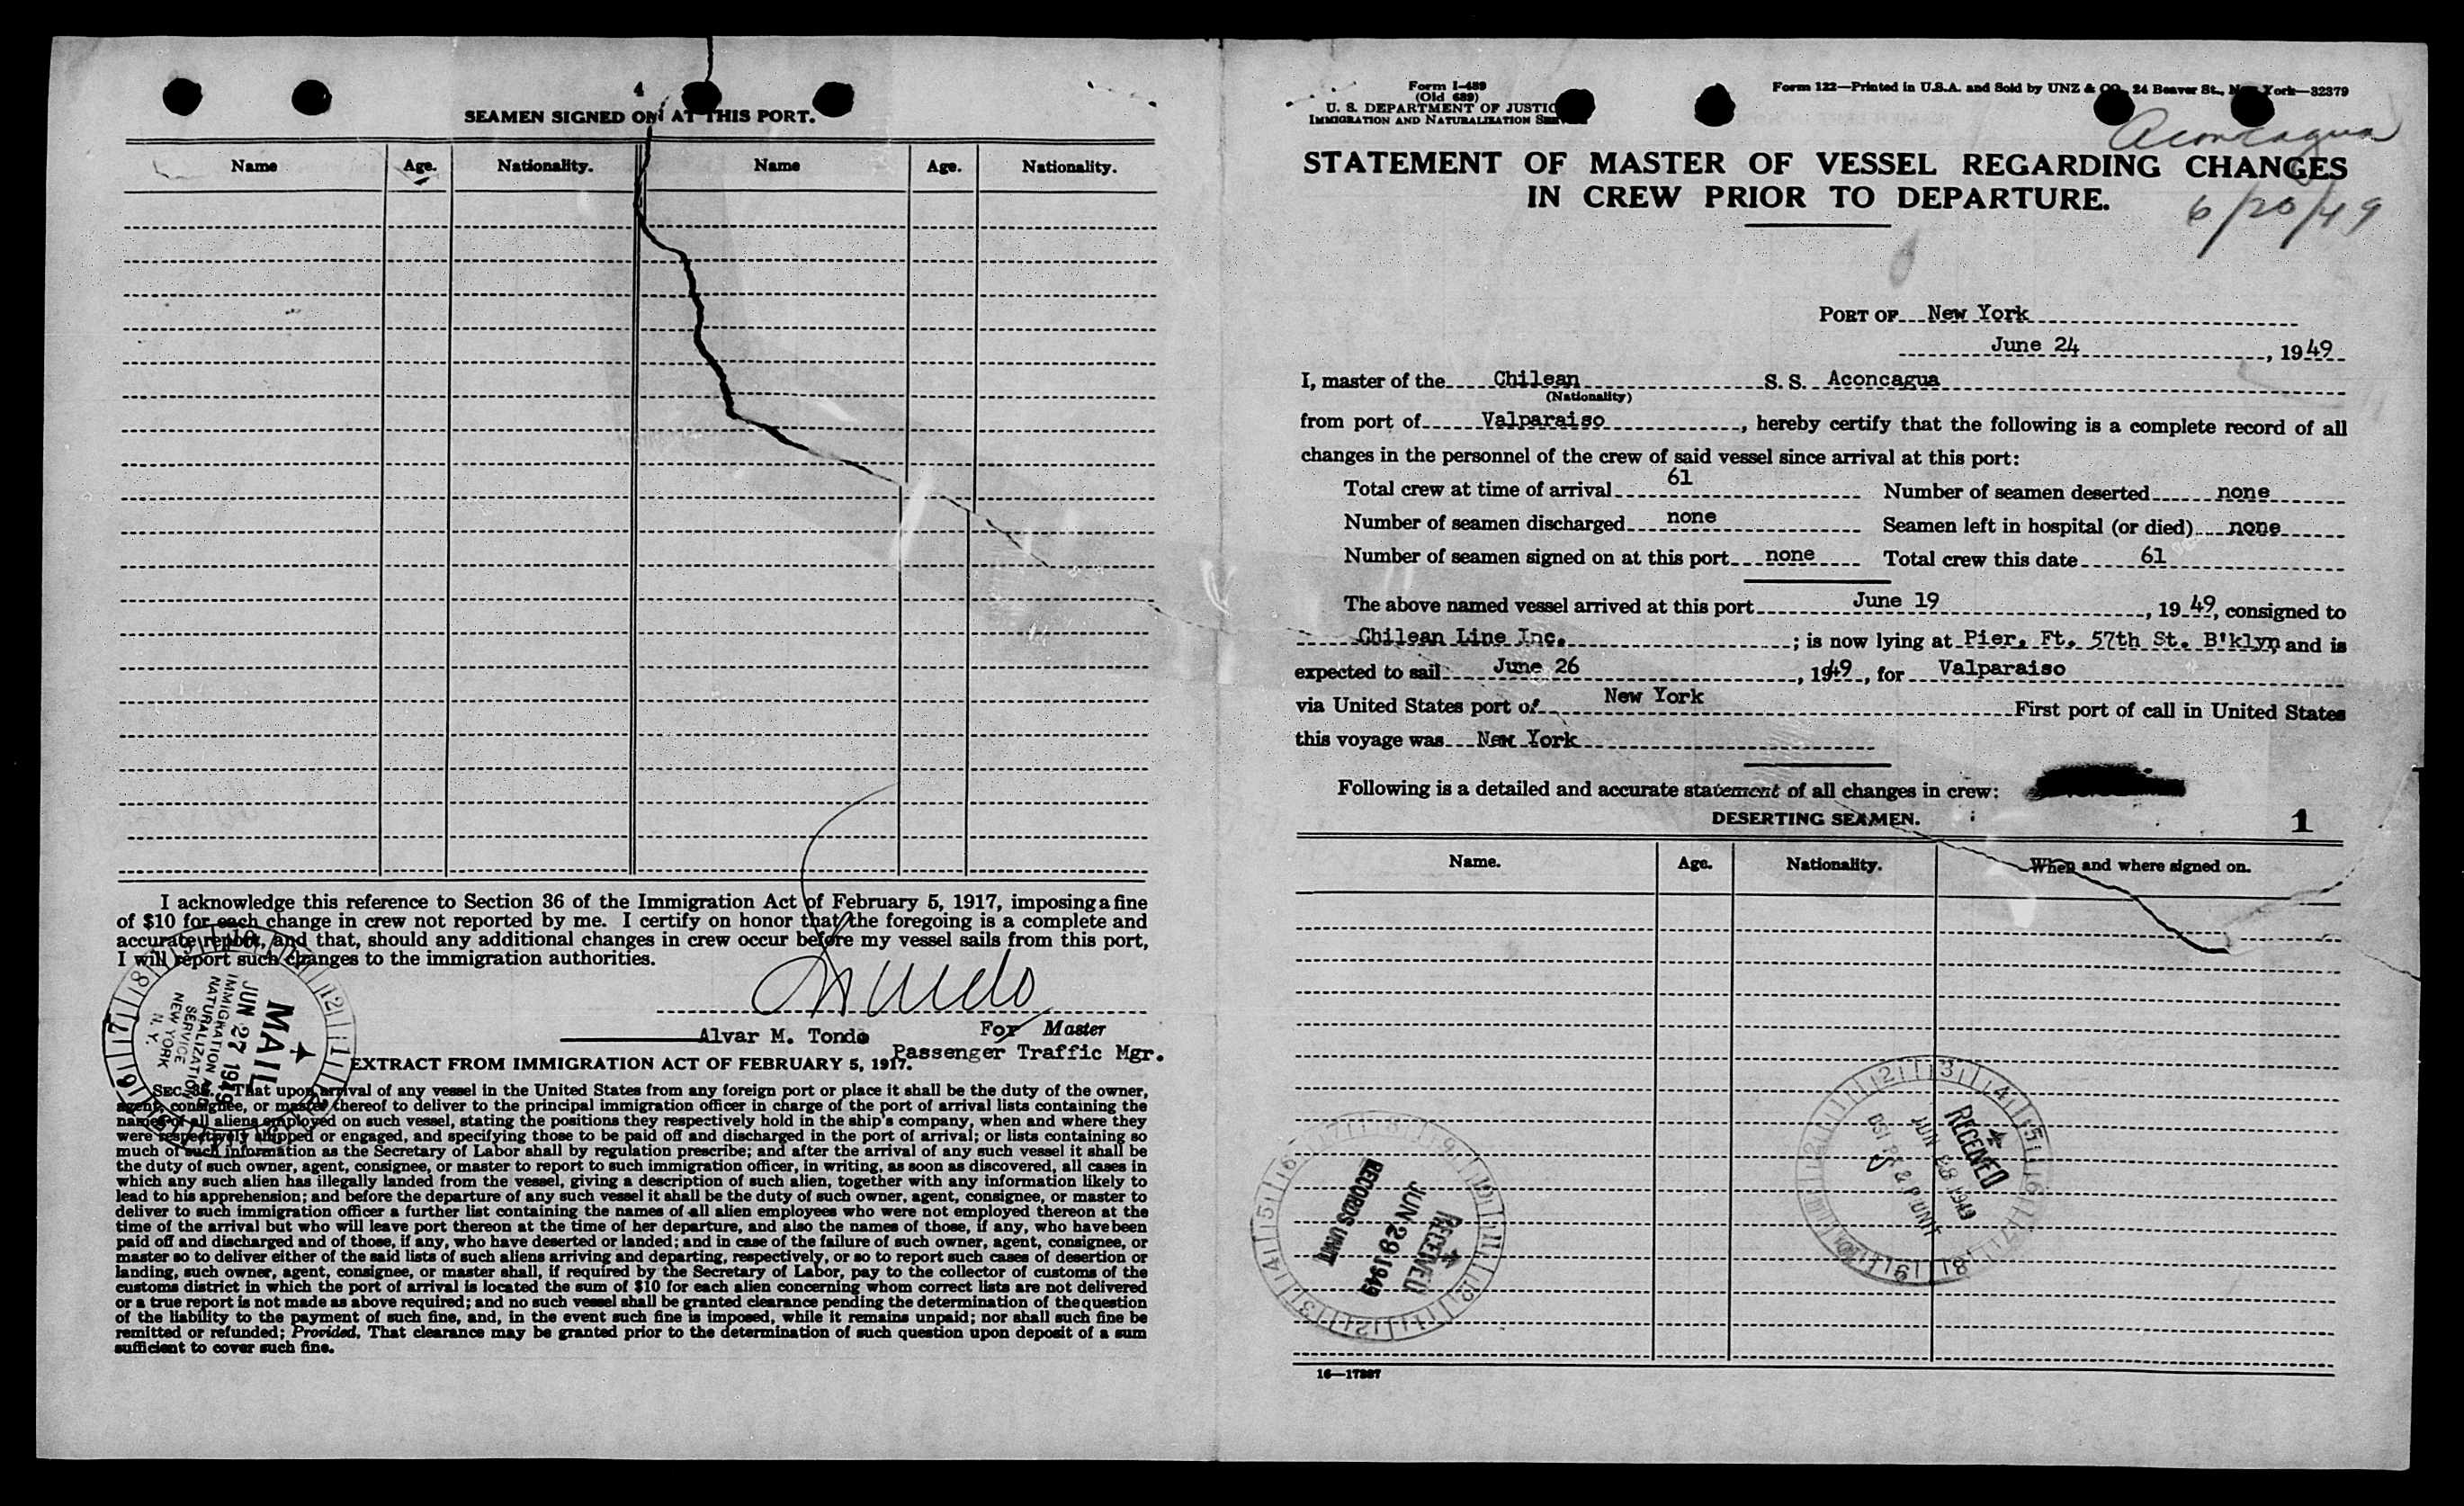 4
SEAMEN SIGNED ON AT THIS PORT.
Name Age. Nationality. Name Age. Nationality.
I acknowledge this reference to Section 36 of the Immigration Act of February 5, 1917, imposing a fine
of $10 for each change in crew not reported by me. I certify on honor that the foregoing is a complete and
accurate report, and that, should any additional changes in crew occur before my vessel sails from this port,
I will report such changes to the immigration authorities.
Alvar M. Tondo For Master
Passenger Traffic Mgr.
EXTRACT FROM IMMIGRATION ACT OF FEBRUARY 5, 1917.
SEC. 36. That upon arrival of any vessel in the United States from any foreign port or place it shall be the duty of the owner,
agent, consignee, or master thereof to deliver to the principal immigration officer in charge of the port of arrival lists containing the
names of all aliens employed on such vessel, stating the positions they respectively hold in the ship's company, when and where they
were respectively shipped or engaged, and specifying those to be paid off and discharged in the port of arrival; or lists containing so
much of such information as the Secretary of Labor shall by regulation prescribe; and after the arrival of any such vessel it shall be
the duty of such owner, agent, consignee, or master to report to such immigration officer, in writing, as soon as discovered, all cases in
which any such alien has illegally landed from the vessel, giving a description of such alien, together with any information likely to
lead to his apprehension; and before the departure of any such vessel it shall be the duty of such owner, agent, consignee, or master to
deliver to such immigration officer a further list containing the names of all alien employees who were not employed thereon at the
time of the arrival but who will leave port thereon at the time of her departure, and also the names of those, if any, who have been
paid off and discharged and of those, if any, who have deserted or landed; and in case of the failure of such owner, agent, consignee, or
master so to deliver either of the said lists of such aliens arriving and departing, respectively, or so to report such cases of desertion or
landing, such owner, agent, consignee, or master shall, if required by the Secretary of Labor, pay to the collector of customs of the
customs district in which the port of arrival is located the sum of $10 for each alien concerning whom correct lists are not delivered
or a true report is not made as above required; and no such vessel shall be granted clearance pending the determination of the question
of the liability to the payment of such fine, and, in the event such fine is imposed, while it remains unpaid; nor shall such fine be
remitted or refunded; Provided, That clearance may be granted prior to the determination of such question upon deposit of a sum
sufficient to cover such fine.
MAIL
JUN 27 1949
IMMIGRATION AND
NATURALIZATION
SERVICE
NEW YORK
N. Y.
Form I-489
(Old 689)
U. S. DEPARTMENT OF JUSTICE
IMMIGRATION AND NATURALIZATION SERVICE
Form 122—Printed in U.S.A. and Sold by UNZ & CO., 24 Beaver St., New York—32379
Aconcagua
STATEMENT OF MASTER OF VESSEL REGARDING CHANGES
IN CREW PRIOR TO DEPARTURE.
6/20/49
PORT OF New York
June 24, 1949
I, master of the Chilean S. S. Aconcagua
(Nationality)
from port of Valparaiso, hereby certify that the following is a complete record of all
changes in the personnel of the crew of said vessel since arrival at this port:
Total crew at time of arrival 61 Number of seamen deserted none
Number of seamen discharged none Seamen left in hospital (or died) none
Number of seamen signed on at this port none Total crew this date 61
The above named vessel arrived at this port June 19, 1949, consigned to
Chilean Line Inc. ; is now lying at Pier, Ft. 57th St. B'klyn and is
expected to sail June 26, 1949, for Valparaiso
via United States port of New York First port of call in United States
this voyage was New York
Following is a detailed and accurate statement of all changes in crew:
DESERTING SEAMEN. 1
Name. Age. Nationality. When and where signed on.
RECEIVED
JUN 29 1949
RECORDS UNIT
RECEIVED
JUN 28 1949
UNIT